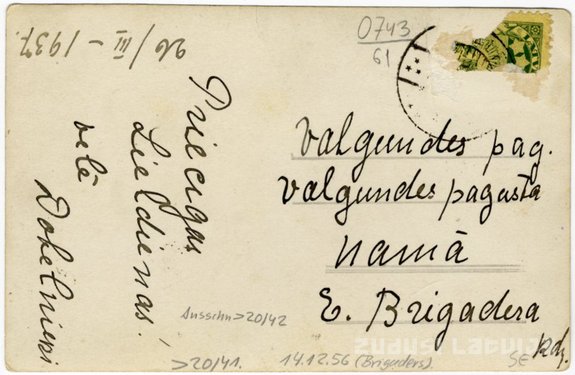 26/III – 1937.
Priecigas
Lieldienas!
vēlē
0743
61
LATVIJA
Valgundes pag.
Valgundes pagasta
namā
E. Brigadera
kdz.
>20/42
>20/41.
14.12.56 (Brigaders).
SE
ZUDUSĪ LATVIJA